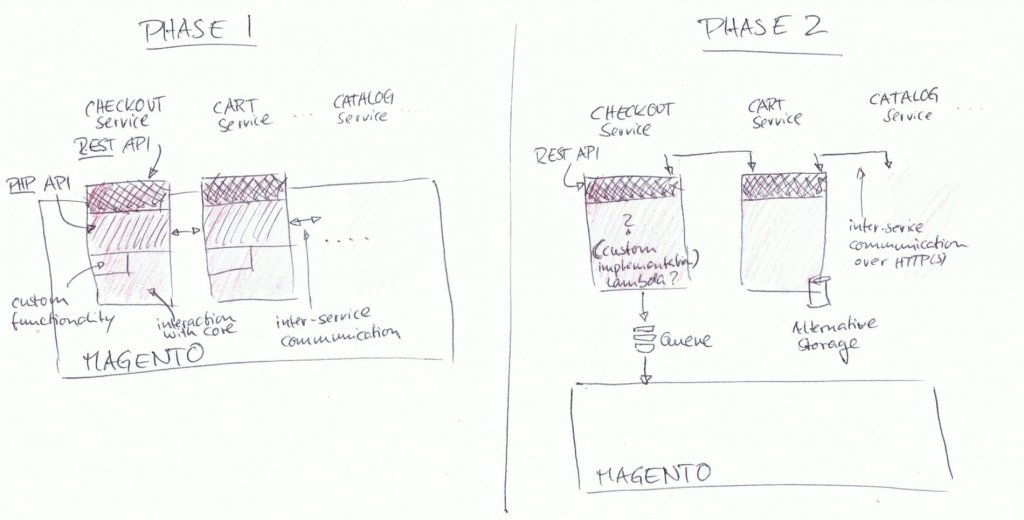 PHASE 1
CHECKOUT
service
CART
service
...
CATALOG
service
...
REST API
PHP API
....
custom
functionality
interaction
with core
inter-service
communication
MAGENTO
PHASE 2
CHECKOUT
service
CART
service
CATALOG
service
...
REST API
?
(custom
implementation)
Lambda?
inter-service
communication
over HTTP(S)
Queue
Alternative
storage
MAGENTO